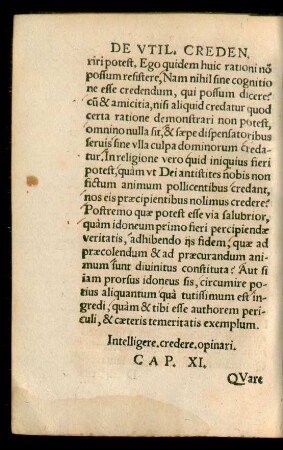 DE VTIL. CREDEN.
riri potest. Ego quidem huic rationi nō
possum resistere, Nam nihil sine cognitio
ne esse credendum, qui possum dicere?
cū & amicitia, nisi aliquid credatur quod
certa ratione demonstrari non potest,
omnino nulla sit, & sæpe dispensatoribus
seruis sine vlla culpa dominorum creda-
tur. In religione vero quid iniquius fieri
potest, quàm vt Dei antistites nobis non
fictum animum pollicentibus credant,
nos eis præcipientibus nolimus credere?
Postremo quæ potest esse via salubrior,
quàm idoneum primo fieri percipiendæ
veritatis, adhibendo ijs fidem, quæ ad
præcolendum & ad præcurandum ani-
mum sunt diuinitus constituta? Aut si
iam prorsus idoneus sis, circumire po-
tius aliquantum quà tutissimum est in-
gredi, quàm & tibi esse authorem peri-
culi, & cæteris temeritatis exemplum.
Intelligere, credere, opinari.
CAP. XI.
QVare